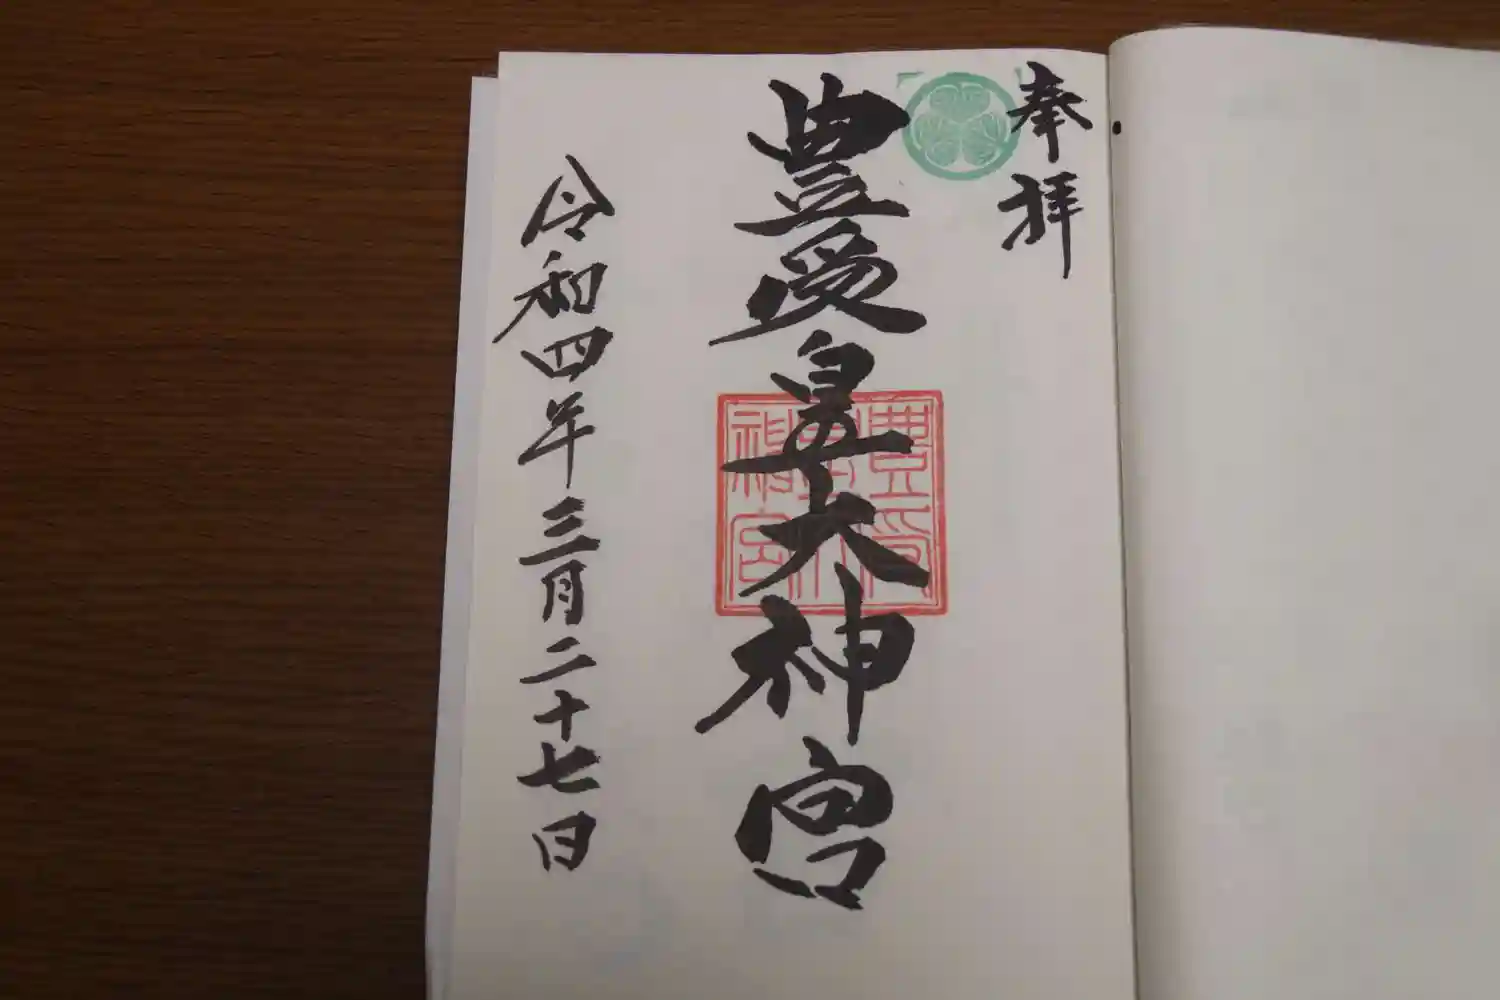 奉拝
豊受皇大神宮
豊受皇大神宮
令和四年三月二十七日